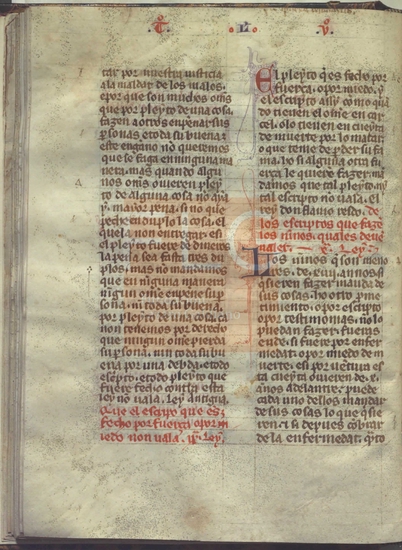 T L V
tar por nuestra iusticia
ala maldat de los malos.
e por que son muchos omes
que por pleyto de una cosa
fazen a otros enpenar sus
personas e toda su buena
este enganno no queremos
que se faga en ninguna ma
nera. mas quando algu
nos omes ouieren pley
to de alguna cosa no aya
y mayor pena. si no que
peche en duplo la cosa. el
que la non entregar. e si
el pleyto fuere de dineros
la pena sea fasta tres du
plos. mas no mandamos
que en ninguna manera
ningun ome enpenne su per
sona. ni toda su buena.
por pleyto de una cosa. ca
non tenemos por derecho
que ningun ome pierda
su persona. nin toda su bu
ena por una debda. e todo
escripto. e todo pleyto que
fuere fecho contra esta
ley no uala. ley antigua.
Que el escripto que es
fecho por fuerça o por m
iedo non uala. Ley.
El pleyto que es fecho por
fuerça. o por miedo. y
el escripto assy como qua
do tienen el ome en car
cel. o lo tienen en cueyta
de muerte por lo matar.
o que teme de perder su fa
ma. o si alguna otra fu
erça le quiere fazer. ma
damos que tal pleyto. ny
tal escripto no uala. El
rey don flauio resido. de
los escriptos que faze
los ninos. quales deue
ualer. Ley.
Los ninos que son meno
res de annos si
quieren fazer manda de
sus cosas. o otro pro
metimiento. o por escripto
o por testimonias. no lo
puedan fazer. fueras
ende. si fuere por enfer
medat. o por miedo de m
uerte. e si por uentura es
ta cueyta ouieren de
annos adelante. puede
cada uno dellos mandar
de sus cosas lo que quisi
eren. e si depues cobrar
de la enfermedat. quanto